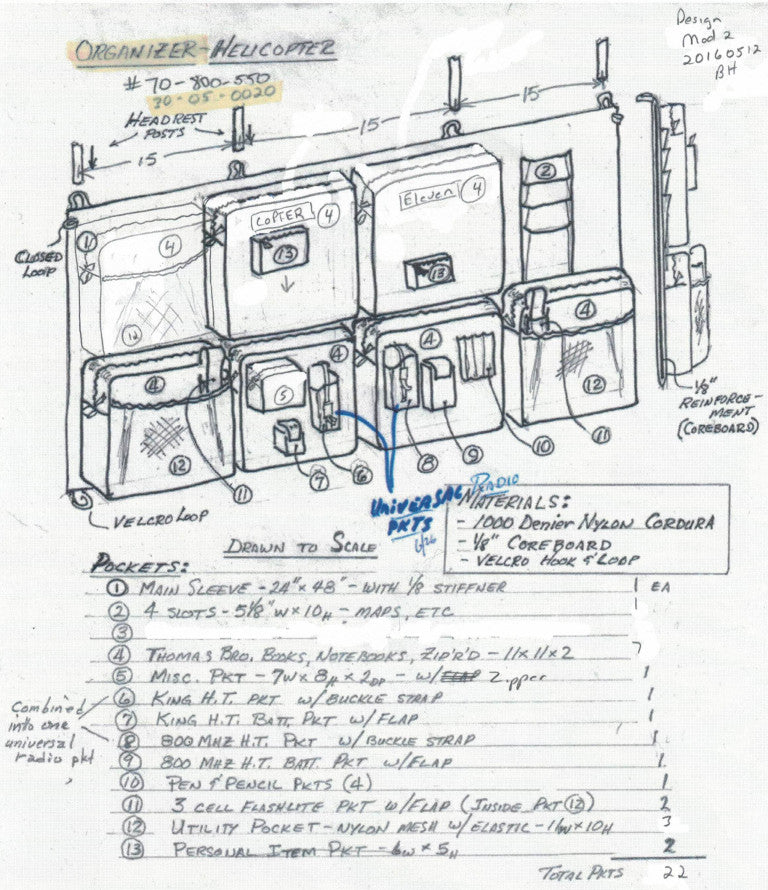 ORGANIZER-HELICOPTER
# 70-800-550
30-05-0020
Design
Mod 2
20160512
BH
HEADREST
POSTS
15
15
15
CLOSED
LOOP
1
4
12
COPTER
4
13
Eleven
4
13
2
4
12
4
12
5
4
4
11
7
6
8
9
10
11
1/8"
REINFORCE-
MENT
(COREBOARD)
VELCRO LOOP
UNIVERSAL RADIO
PKTS
6/26
DRAWN TO SCALE
MATERIALS:
- 1000 Denier NYLON CORDURA
- 1/8" COREBOARD
- VELCRO HOOK & LOOP
POCKETS:
1 MAIN SLEEVE - 24" x 48" - WITH 1/8 STIFFNER 1 EA
2 4 SLOTS - 5 1/8" W x 10H - MAPS, ETC 1
3
4 THOMAS BRO. BOOKS, NOTEBOOKS, ZIP'R'D - 11 x 11 x 2 7
5 MISC. PKT - 7W x 8H x 2DP - W/ Zipper 1
6 KING H.T. PKT W/BUCKLE STRAP 1
7 KING H.T. BATT. PKT W/FLAP 1
8 800 MHZ H.T. PKT W/BUCKLE STRAP 1
9 800 MHZ H.T. BATT. PKT W/FLAP 1
10 PEN & PENCIL PKTS (4) 1
11 3 CELL FLASHLITE PKT W/FLAP (INSIDE PKT 12) 2
12 UTILITY POCKET - NYLON MESH W/ELASTIC - 11W x 10H 3
13 PERSONAL ITEM PKT - 6W x 5H 2
TOTAL PKTS 22
Combined
into one
universal
radio pkt